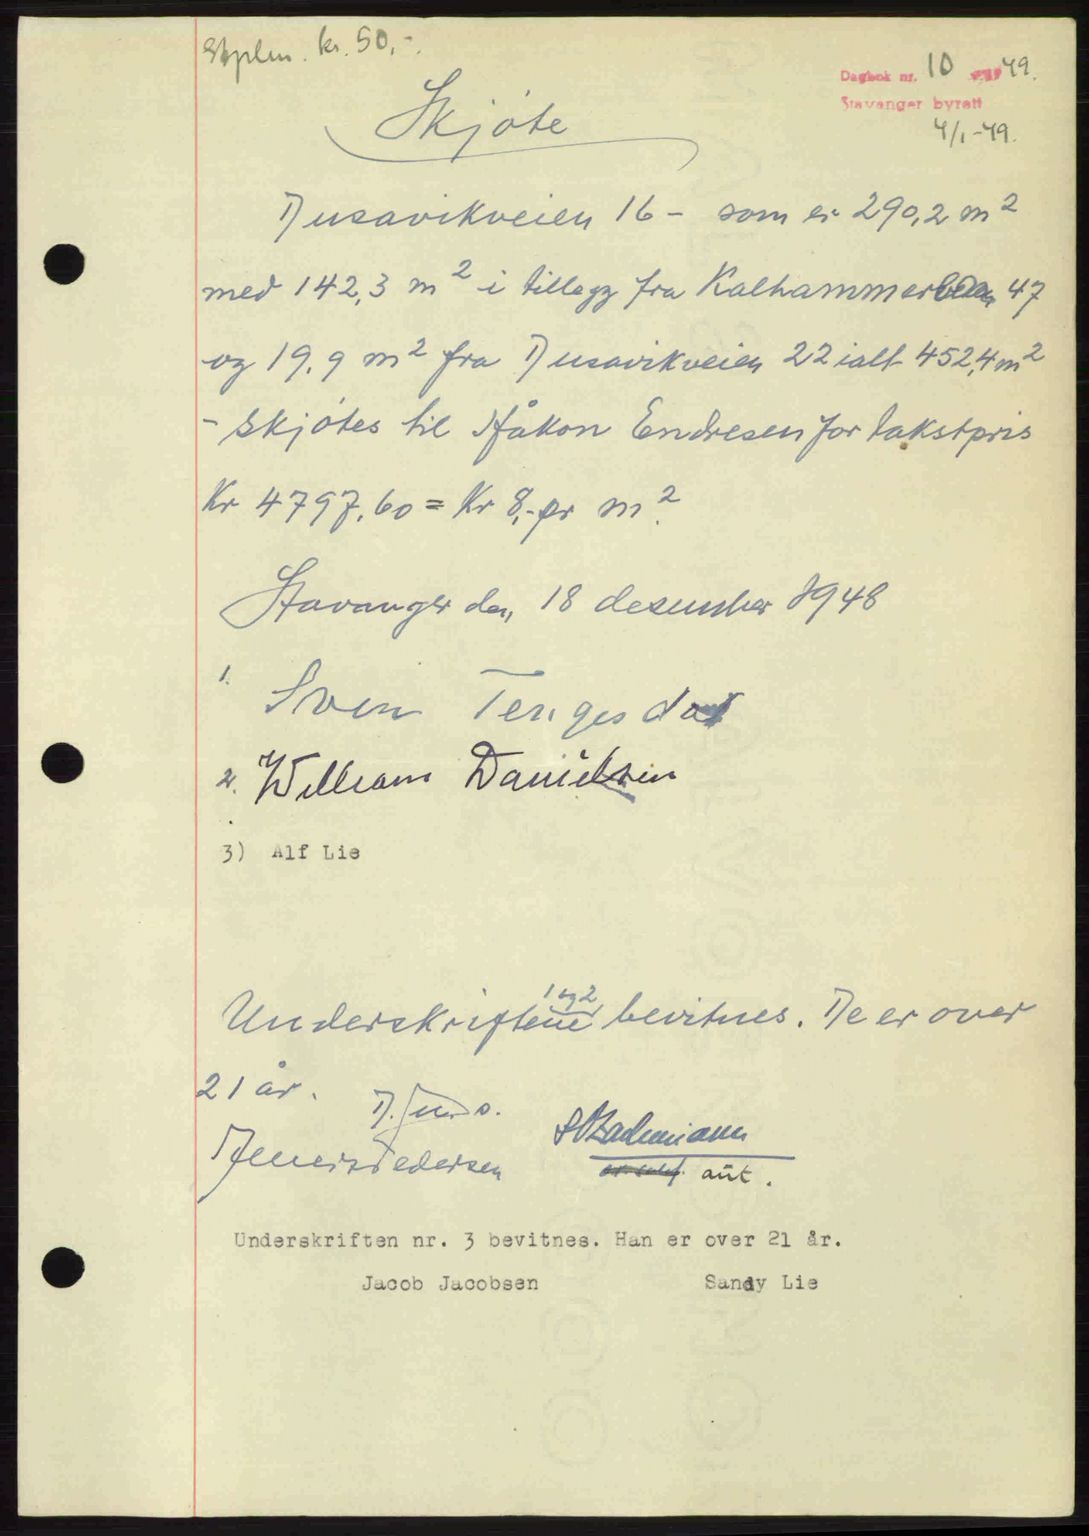 Stplm. kr. 50,-.
Dagbok nr. 10 49.
Stavanger byrett
4/1-49.
Skjøte
Dusavikveien 16 - som er 290,2 m2
med 142,3 m2 i tillegg fra Kalhammer 47
og 19,9 m2 fra Dusavikveien 22 ialt 452,4 m2
- skjøtes til Håkon Endresen for takstpris
Kr 4797,60 = Kr 8,- pr m2.
Stavanger den, 18 desember 1948
1. Sven Tengesdal
2. William Danielsen
3) Alf Lie
1 og 2
Underskriftene bevitnes. De er over
21 år.
D. s.
Pedersen
aut.
Underskriften nr. 3 bevitnes. Han er over 21 år.
Jacob Jacobsen Sandy Lie